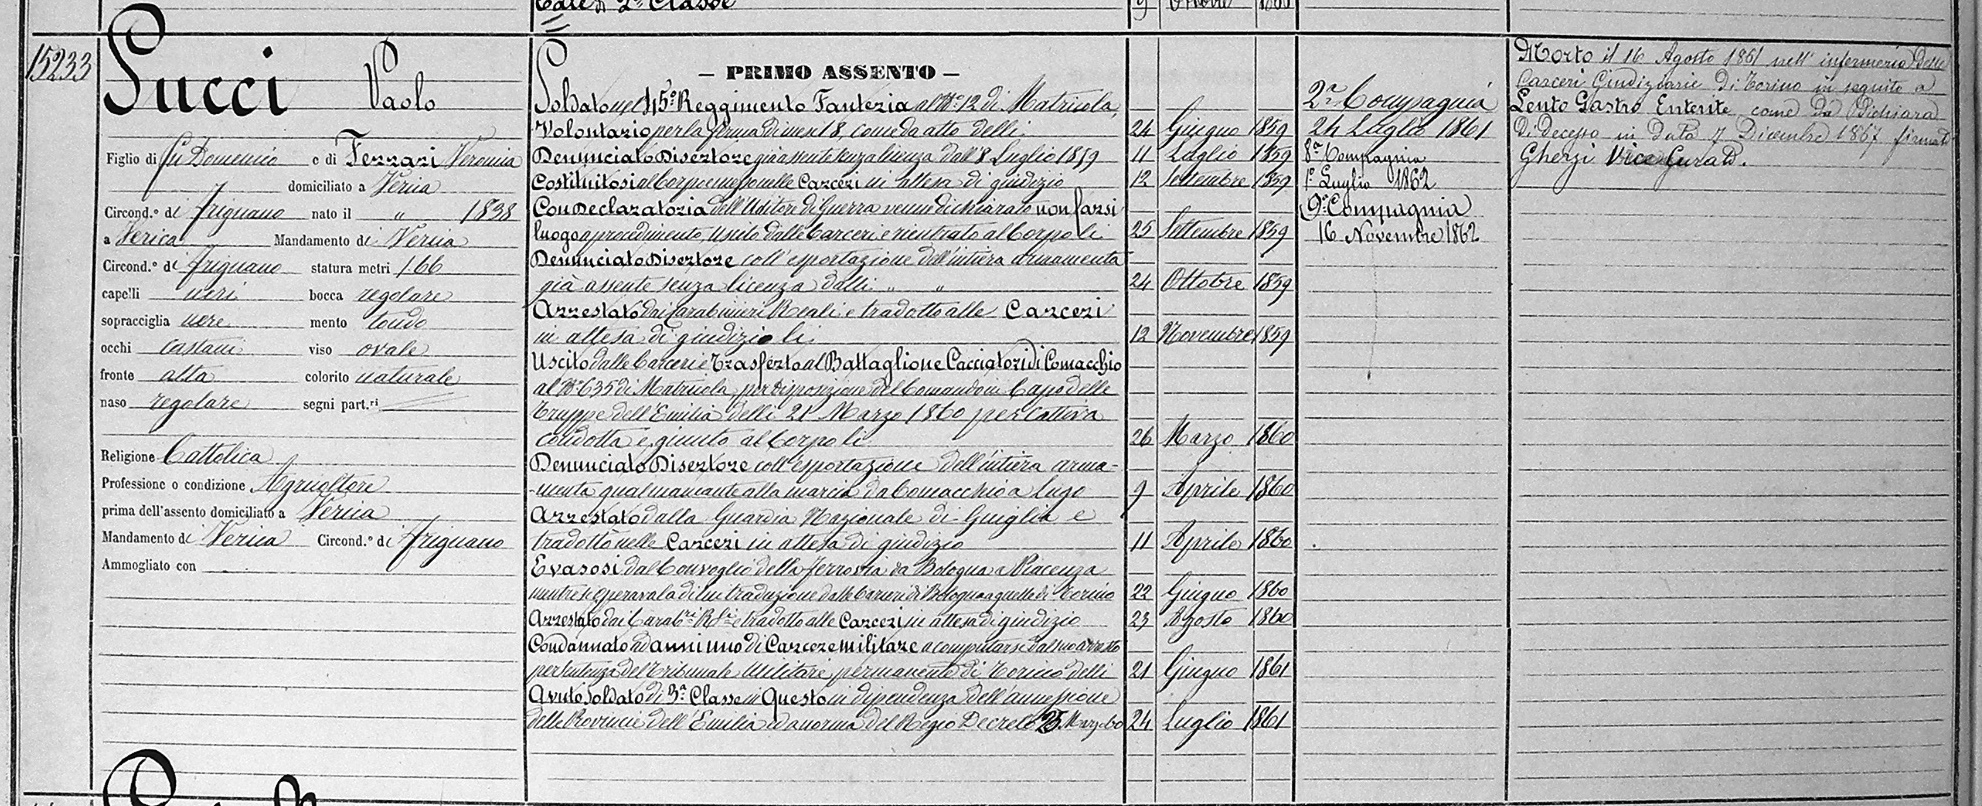 Tale di 2ª Classe 9 Ottobre 1860
15233
Lucci Paolo
Figlio di fu Domenico e di Ferrari Veronica
domiciliato a Verica
Circond.° di Frignano nato il " 1838
a Verica Mandamento di Verica
Circond.° di Frignano statura metri 1 66
capelli neri bocca regolare
sopracciglia nere mento tondo
occhi castani viso ovale
fronte alta colorito naturale
naso regolare segni part.ri
Religione Cattolica
Professione o condizione Agricoltore
prima dell'assento domiciliato a Verica
Mandamento di Verica Circond.° di Frignano
Ammogliato con
— PRIMO ASSENTO —
Soldato nel 45° Reggimento Fanteria al N° 12 di Matricola
Volontario per la ferma di mesi 18, come da atto delli 24 Giugno 1859
Denunciato Disertore già assente senza licenza dall' 8 Luglio 1859 11 Luglio 1859
Costituitosi al Corpo e messo nelle Carceri in attesa di giudizio 12 Settembre 1859
Con Declaratoria dell'Uditore di Guerra venne dichiarato non farsi
luogo a procedimento, uscito dalle Carceri e rientrato al Corpo li 25 Settembre 1859
Denunciato Disertore coll'esportazione dell'intiera armamenta
già assente senza licenza dalli " " 24 Ottobre 1859
Arrestato dai Carabinieri Reali e tradotto alle Carceri
in attesa di giudizio li 12 Novembre 1859
Uscito dalle Carceri e Trasferto al Battaglione Cacciatori di Comacchio
al N° 635 di Matricola per disposizione del Comando in Capo delle
Truppe dell'Emilia delli 21 Marzo 1860 per cattiva
condotta e giunto al Corpo li 26 Marzo 1860
Denunciato Disertore coll'esportazione dell'intiera arma-
-menta qual mancante alla marcia da Comacchio a Lugo 9 Aprile 1860
Arrestato dalla Guardia Nazionale di Guiglia e
tradotto nelle Carceri in attesa di giudizio 11 Aprile 1860
Evasosi dal Convoglio della ferrovia da Bologna a Piacenza
mentre si operava la di lui traduzione dalle Carceri di Bologna a quelle di Torino 22 Giugno 1860
Arrestato dai Carab.ri R.li e tradotto alle Carceri in attesa di giudizio 23 Agosto 1860
Condannato ad anni uno di Carcere militare a computarsi dal suo arresto
per sentenza del Tribunale Militare permanente di Torino delli 21 Giugno 1861
Avuto Soldato di 3ª Classe in Questo in dipendenza dell'annessione
delle Provincie dell'Emilia ed a norma del Regio Decreto 25 Marzo 60 24 Luglio 1861
2ª Compagnia
24 Luglio 1861
8ª Compagnia
1° Luglio 1862
9ª Compagnia
16 Novembre 1862
Morto il 16 Agosto 1861 nell'infermeria delle
Carceri Giudiziarie di Torino in seguito a
Lento Gastro Enterite come da Dichiara
Di decesso in data 7 Dicembre 1867 firmato
Ghersi Vice Curato.